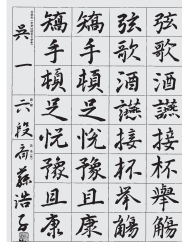 弦歌酒讌接杯舉觴
弦歌酒讌接杯举觴
矯手頓足悅豫且康
矯手頓足悅豫且康
吳一 六段 斎藤浩子